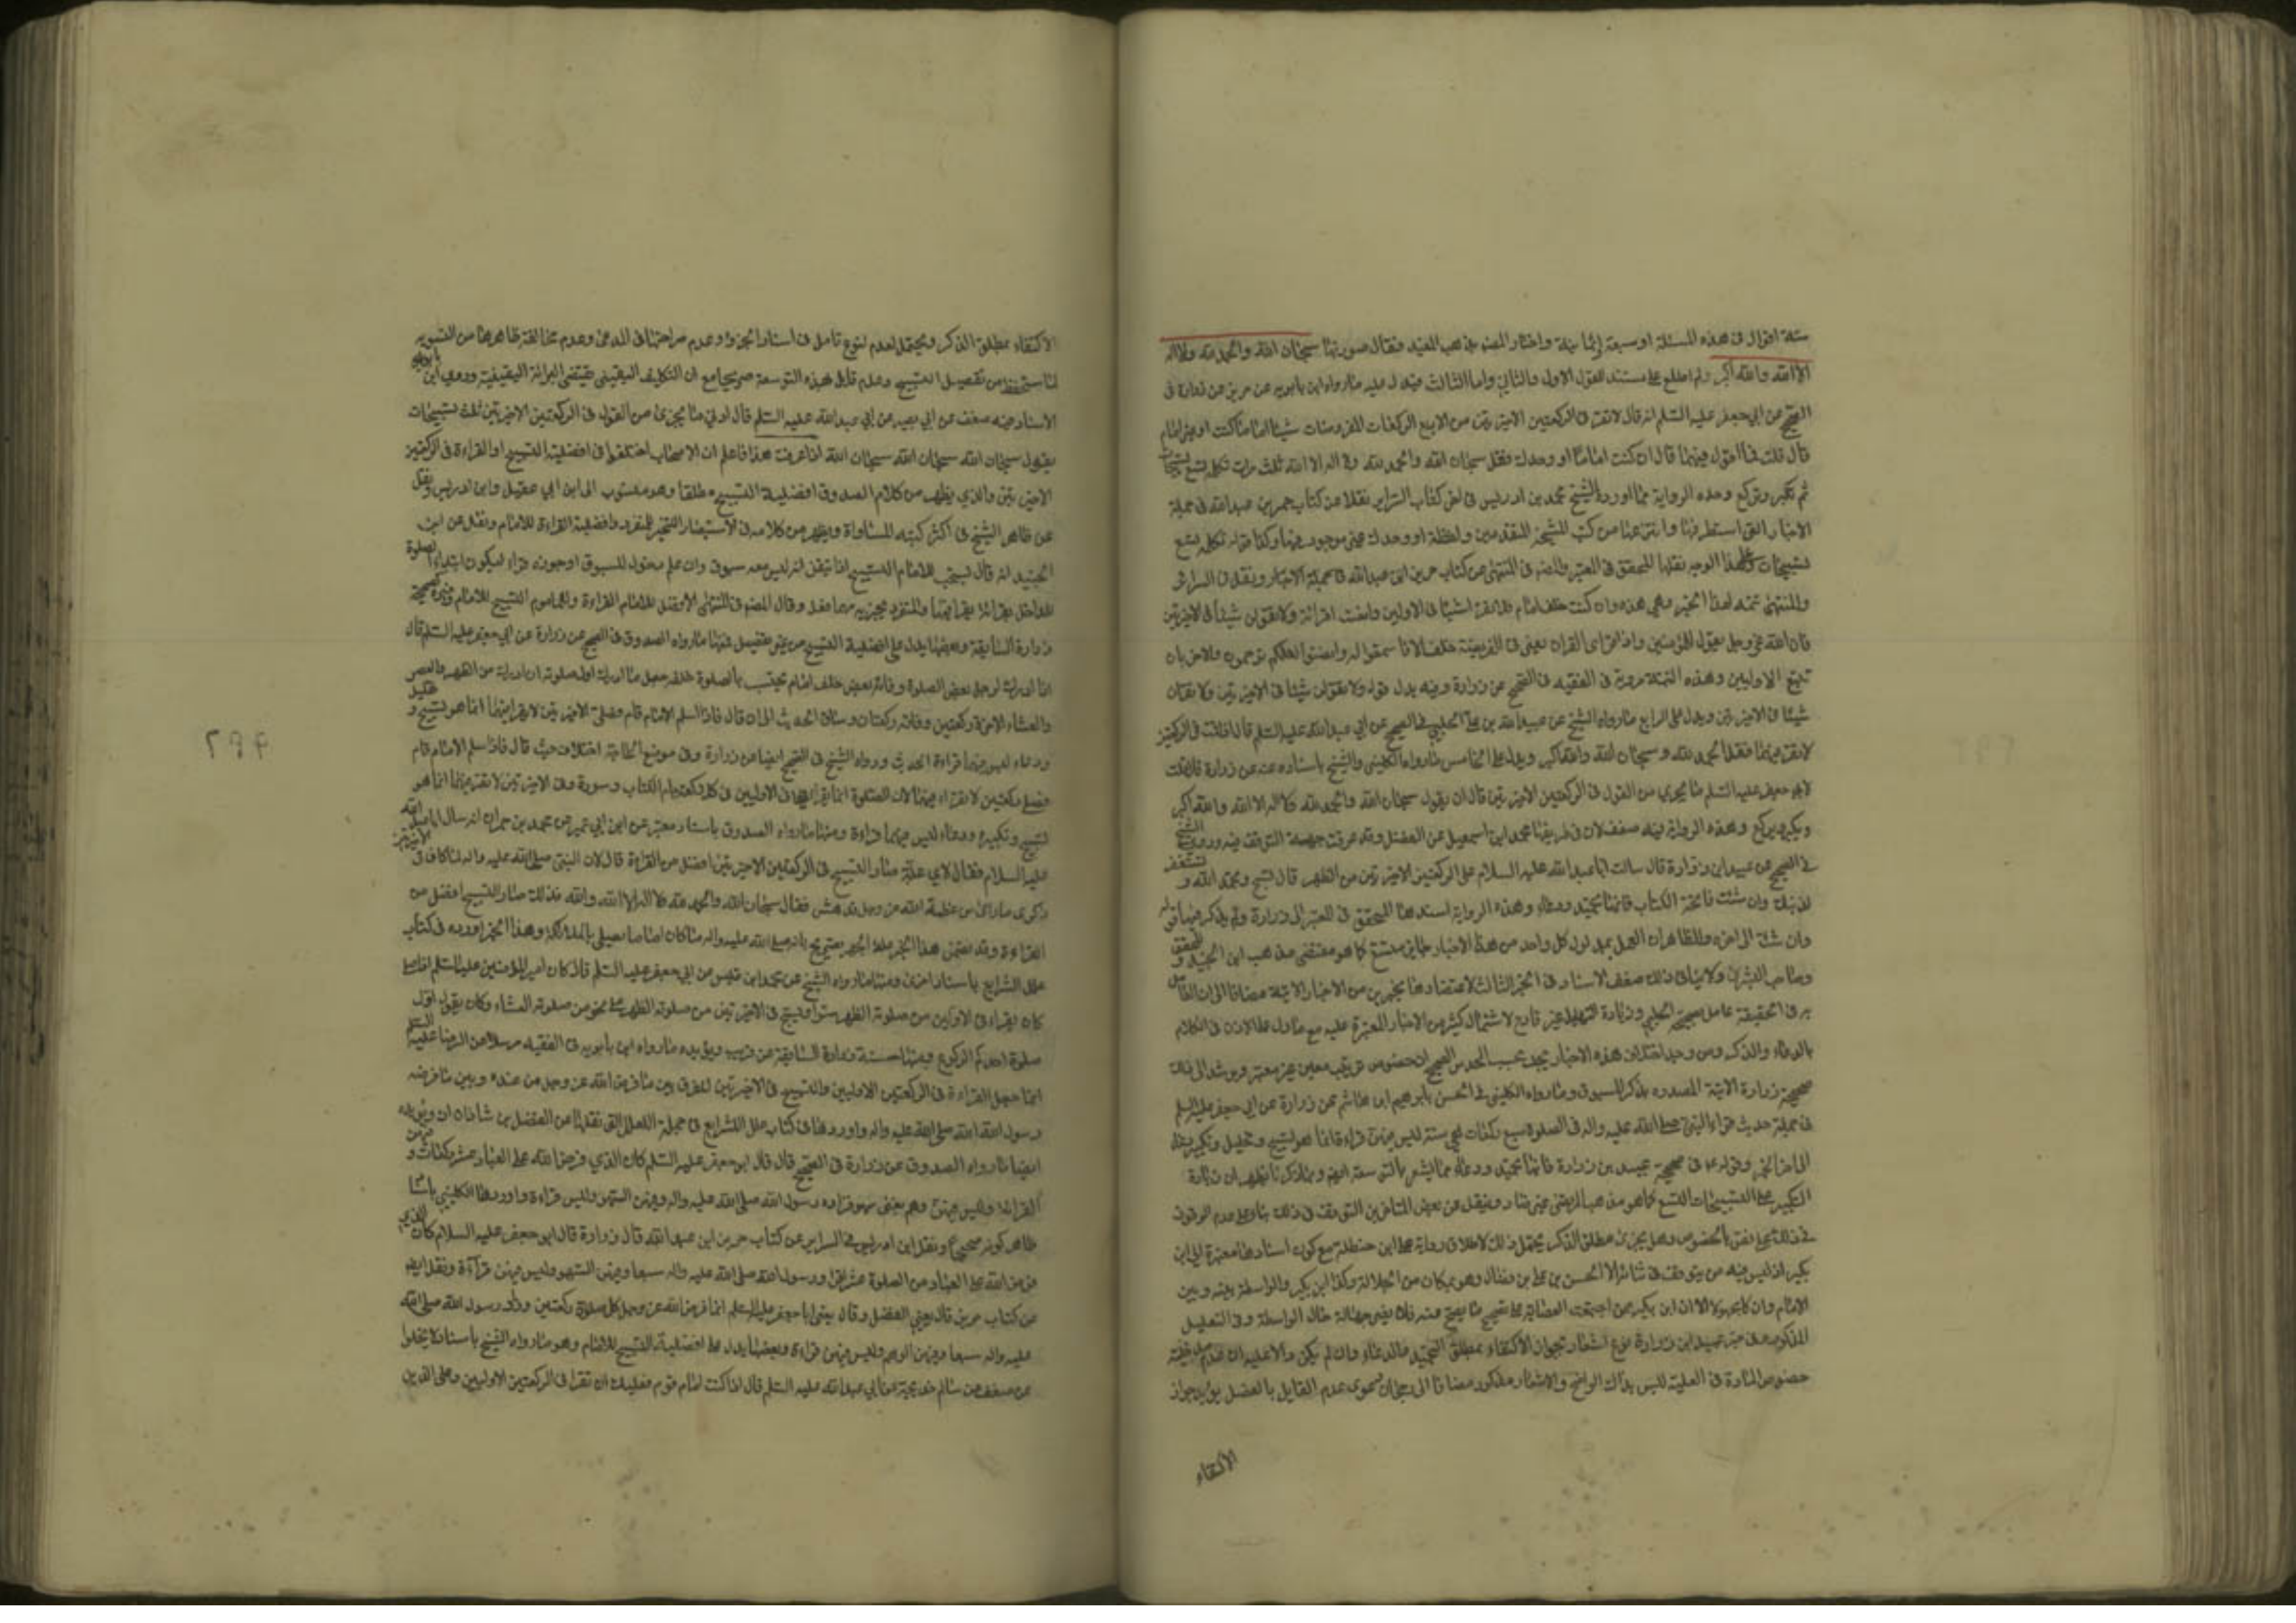 ستة اقوال فى هذه المسئلة او سبعة او ثمانية واختار المصنه مذهب المفيد فقال صورتها سبحان الله والحمد لله ولا اله
الا الله والله اكبر ولم اطلع على مستند للقول الاول والثانى واما الثالث فيدل عليه ما رواه ابن بابويه عن حريز عن زرارة فى
الصحيح عن ابى جعفر عليه السلم انه قال لا تقرء فى الركعتين الاخيرتين من الاربع الركعات المفروضات شيئا اماما كنت او غير امام
قال قلت فما اقول فيهما قال ان كنت اماما او وحدك فقل سبحان الله والحمد لله ولا اله الا الله ثلث مرات تكمله تسع تسبيحات
ثم تكبر وتركع وهذه الرواية مما اورده الشيخ محمد بن ادريس فى اخر كتاب السراير نقلا عن كتاب حريز بن عبد الله فى جملة
الاخبار التى استطرفها وانتزعها من كتب المشيخة المتقدمين ولفظة او وحدك غير موجود فيها وكذا قوله تكمله تسع
تسبيحات وعلى هذا الوجه نقلها المحقق فى المعتبر والمصنه فى المنتهى من كتاب حريز ابن عبد الله فى جملة الاخبار ونقل فى السرائر
والمنتهى تتمة لهذا الخبر وهى هذه وان كنت خلف امام فلا تقرء شيئا فى الاوليين وانصت لقرائته ولا تقولن شيئا فى الاخيرتين
فان الله عز وجل يقول للمؤمنين واذا قرئ القران يعنى فى الفريضة خلف الامام فاستمعوا له وانصتوا لعلكم ترحمون والاخريان
تتبع الاوليين وهذه التتمة مروية فى الفقيه فى الصحيح عن زرارة وفيه بدل قوله ولا تقولن شيئا فى الاخيرتين ولا تقرءن
شيئا فى الاخيرتين ويدل على الرابع ما رواه الشيخ عن عبيد الله بن على الحلبى فى الصحيح عن ابى عبد الله عليه السلم قال اذا قمت فى الركعتين
لا تقرء فيهما فقل الحمد لله وسبحان الله والله اكبر ويدل على الخامس ما رواه الكلينى والشيخ باسناده عنه عن زرارة قال قلت
لابى جعفر عليه السلم ما يجزى من القول فى الركعتين الاخيرتين قال ان يقول سبحان الله والحمد لله ولا اله الا الله والله اكبر
ويكبر ويركع وهذه الرواية فيه ضعف لان فى طريقها محمد ابن اسمعيل عن الفضل وقد عرفت جهة التوقف فيه وروى الشيخ
فى الصحيح عن عبيد ابن زرارة قال سالت ابا عبد الله عليه السلام عن الركعتين الاخيرتين من الظهر قال تسبح وتحمد الله وتستغفر
لذنبك وان شئت فاتحة الكتاب فانها تحميد ودعاء وهذه الرواية اسندها المحقق فى المعتبر الى زرارة ولم يذكر فيها قوله
وان شئت الى اخره والظاهر ان العمل بمدلول كل واحد من هذه الاخبار جايز متسع كما هو مقتضى مذهب ابن الجنيد والمحقق
وصاحب البشرى ولا ينافى ذلك ضعف الاسناد فى الخبر الثالث لاعتضادها بخبرين من الاخبار الاتية مضافا الى ان القائل
به فى الحقيقة عامل بصحيحة الحلبى وزيادة التهليل غير قادح لاشتمال كثير من الاخبار المعتبرة عليه مع ما دل على الاذن فى الكلام
بالدعاء والذكر ومن وجد اختلاف هذه الاخبار يجد بحسب الحدس الصحيح ان خصوص ترتيب معين غير معتبر ويرشد الى ذلك
صحيحة زرارة الاتية المصدره بذكر المسبوق وما رواه الكلينى فى الحسن بابرهيم ابن هاشم عن زرارة عن ابى جعفر عليه السلم
فى جملة حديث فزاد النبى صلى الله عليه واله فى الصلوة سبع ركعات هى سنة ليس فيهن قراءة انما هو تسبيح وتهليل وتكبير ودعاء
الى اخر الخبر وقوله ع فى صحيحة عبيد بن زرارة فانها تحميد ودعاء مما يشعر بالتوسعة ايضا وبما ذكرنا يظهر ان زيادة
التكبير على التسبيحات التسع كما هو مذهب المرتضى غير ضار وينقل عن بعض المتاخرين التوقف فى ذلك بناء على عدم الوقوف
فى ذلك على نص بالخصوص وهل يجزى مطلق الذكر يحتمل ذلك لاطلاق رواية على ابن حنظلة مع كون اسنادها معتبرة الى ابن
بكير اذ ليس فيه من يتوقف فى شانه الا الحسن بن على بن فضال وهو بمكان من الجلالة وكذا ابن بكير والواسطة بينه وبين
الامام وان كان مجهولا الا ان ابن بكير ممن اجتمعت العصابة على تصحيح ما يصح عنه فلا يضر جهالة حال الواسطة وفى التعليل
المذكور فى خبر عبيد ابن زرارة نوع اشعار بجواز الاكتفاء بمطلق التحميد والدعاء وان لم يكن دالا عليه لان عدم مدخلية
خصوص المادة فى العلية ليس بذاك الواضح والاشعار مذكور مضافا الى رجحان دعوى عدم القايل بالفصل يؤيد جواز
الاكتفاء
الاكتفاء بمطلق الذكر ويحتمل لعدم لنوع تامل فى اسناد الخبر او عدم صراحتها فى المدعى وعدم مخالفة ظاهرها من التسوية
لما ستحفظ من تفصيل التسبيح وعدم قايل بهذه التوسعة صريحا مع ان التكليف اليقينى يقتضى البرائة اليقينية وروى ابن بابويه
الاسناد فيه ضعف عن ابى بصير عن ابى عبد الله عليه السلم قال ادنى ما يجزى من القول فى الركعتين الاخيرتين ثلث تسبيحات
يقول سبحان الله سبحان الله سبحان الله اذا عرفت هذا فاعلم ان الاصحاب اختلفوا فى افضلية التسبيح او القراءة فى الركعتين
الاخيرتين والذي يظهر من كلام الصدوق افضلية التسبيح مطلقا وهو منسوب الى ابن ابى عقيل وابن ادريس ونقل
عن ظاهر الشيخ فى اكثر كتبه المساواة ويظهر من كلامه فى الاستبصار التخيير للمنفرد وافضلية القراءة للامام ونقل عن ابن
الجنيد انه قال يستحب للامام التسبيح اذا تيقن انه ليس معه مسبوق وان علم دخول المسبوق او جوزه قراء ليكون ابتداء الصلوة
للداخل بقرائة يقرا فيها والمنفرد يجزيه مهما فعل وقال المصنه فى المنتهى الافضل للامام القراءة وللماموم التسبيح
زرارة السابقة وبعضها يدل على افضلية التسبيح من غير تفصيل فمنها ما رواه الصدوق فى الصحيح عن زرارة عن ابى جعفر عليه السلم قال
اذا ادرك الرجل بعض الصلوة وفاته بعض خلف امام يحتسب بالصلوة خلفه جعل ما ادرك اول صلوته ان ادرك من الظهر والعصر
والعشاء الاخرة ركعتين وفاته ركعتان وساق الحديث الى ان قال فاذا سلم الامام قام فصلى الاخيرتين لا يقرا فيهما انما هو تسبيح وتهليل
ودعاء ليس فيهما قراءة الحديث ورواه الشيخ فى الصحيح ايضا عن زرارة وفى موضع الحاجة اختلاف حيث قال فاذا سلم الامام قام
فصلى ركعتين لا يقراء فيهما لان الصلوة انما يقرا فيها فى الاوليين فى كل ركعة بام الكتاب وسورة وفى الاخيرتين لا تقرء فيهما انما هو
تسبيح وتكبير ودعاء ليس فيهما قراءة ومنها ما رواه الصدوق باسناد معتبر عن ابن ابى عمير عن محمد بن حمران انه سال ابا عبد الله
عليه السلام فقال لاى علة صار التسبيح فى الركعتين الاخيرتين افضل من القراءة قال لان النبى صلى الله عليه واله لما كان فى الاخيرتين
ذكر ما راى من عظمة الله عز وجل فدهش فقال سبحان الله والحمد لله ولا اله الا الله والله فذلك صار التسبيح افضل من
القراءة وقد تضمن هذا الخبر تصريح بانه صلى الله عليه واله ما كان اماما يصلى بالملائكة وهذا الخبر اورده فى كتاب
علل الشرايع باسناد اخر ومنها ما رواه الشيخ عن محمد ابن قيس عن ابى جعفر عليه السلم قال كان امير المؤمنين عليه السلم اذا صلى
كان يقراء فى الاوليين من صلوته الظهر سرا ويسبح فى الاخيرتين من صلوته الظهر على نحو من صلوته العشاء وكان يقول اول
صلوة احدكم الركوع ومنها حسنة زرارة السابقة عن قريب ويؤيده ما رواه ابن بابويه فى الفقيه مرسلا عن الرضا عليه السلم
انما جعل القراءة فى الركعتين الاوليين والتسبيح فى الاخيرتين للفرق بين ما فرض الله عز وجل من عنده وبين ما فرضه
رسول الله صلى الله عليه واله واوردها فى كتاب علل الشرايع فى جملة العلل التى نقلها عن الفضل بن شاذان ويؤيده
ايضا ما رواه الصدوق عن زرارة فى الصحيح قال قال ابو جعفر عليه السلم كان الذي فرض الله على العباد عشر ركعات وفيهن
القرائة وليس فيهن وهم يعنى سهو فزاد رسول الله صلى الله عليه واله سبعا وفيهن السهو وليس فيهن قراءة واوردها الكلينى باسناد
ظاهر كونه صحيحا ونقل ابن ادريس فى السراير عن كتاب حريز ابن عبد الله قال زرارة قال ابو جعفر عليه السلام كان الذي
فرض الله على العباد من الصلوة عشرا فزاد رسول الله صلى الله عليه واله سبعا وفيهن السهو وليس فيهن قراءة ونقل ايضا
من كتاب حريز قال يعنى الفضل وقال يعنى ابا جعفر عليه السلم انما فرض الله عز وجل كل صلوة ركعتين وزاد رسول الله صلى الله
عليه واله سبعا وفيهن الوهم وليس فيهن قراءة وبعضها يدل على افضلية التسبيح للامام وهو ما رواه الشيخ باسناد لا يخلوا
عن ضعف عن سالم خديجة عن ابى عبد الله عليه السلم قال اذا كنت امام قوم فعليك ان تقرا فى الركعتين الاوليين وعلى الذين